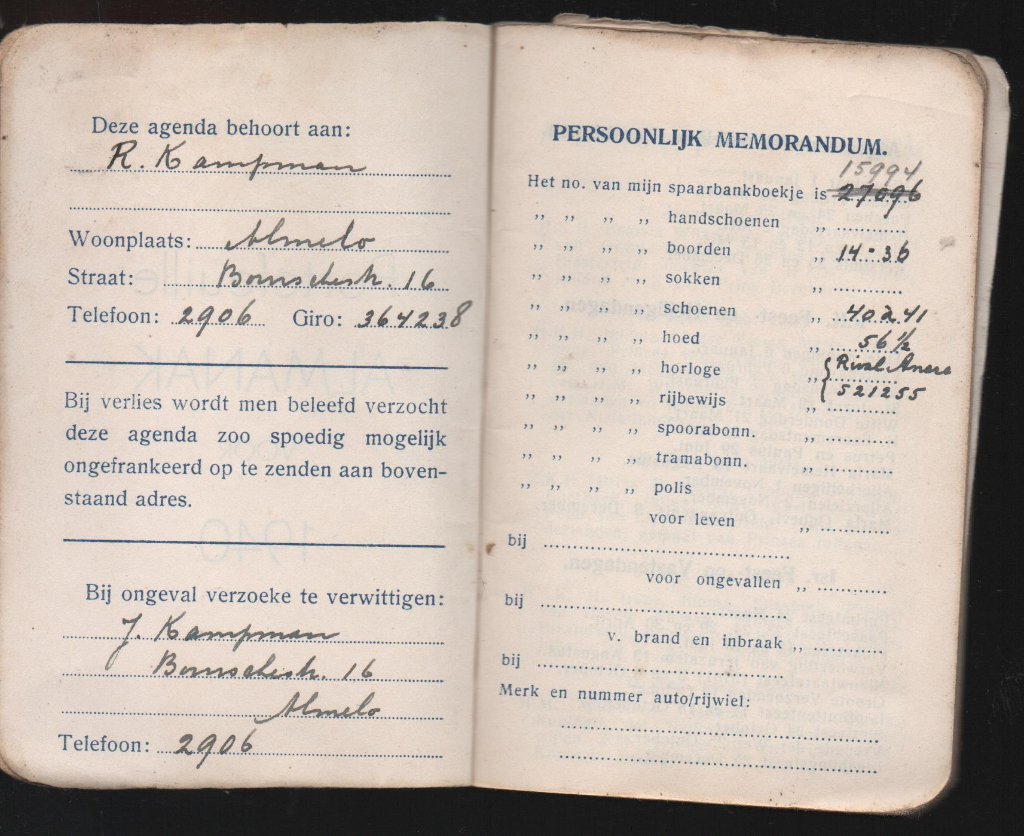 Deze agenda behoort aan:
R. Kampman
Woonplaats: Almelo
Straat: Bornschestr. 16
Telefoon: 2906 Giro: 364238
Bij verlies wordt men beleefd verzocht
deze agenda zoo spoedig mogelijk
ongefrankeerd op te zenden aan boven-
staand adres.
Bij ongeval verzoeke te verwittigen:
J. Kampman
Bornschestr. 16
Almelo
Telefoon: 2906
PERSOONLIJK MEMORANDUM.
15994
Het no. van mijn spaarbankboekje is 27096
,, ,, ,, ,, handschoenen ,,
,, ,, ,, ,, boorden ,, 14-36
,, ,, ,, ,, sokken ,,
,, ,, ,, ,, schoenen ,, 40 à 41
,, ,, ,, ,, hoed ,, 56 1/2
,, ,, ,, ,, horloge ,, Rival
,, ,, ,, ,, rijbewijs ,, 521255
,, ,, ,, ,, spoorabonn. ,,
,, ,, ,, ,, tramabonn. ,,
,, ,, ,, ,, polis
voor leven ,,
bij
voor ongevallen ,,
bij
v. brand en inbraak ,,
bij
Merk en nummer auto/rijwiel:
ALMANAK
1940